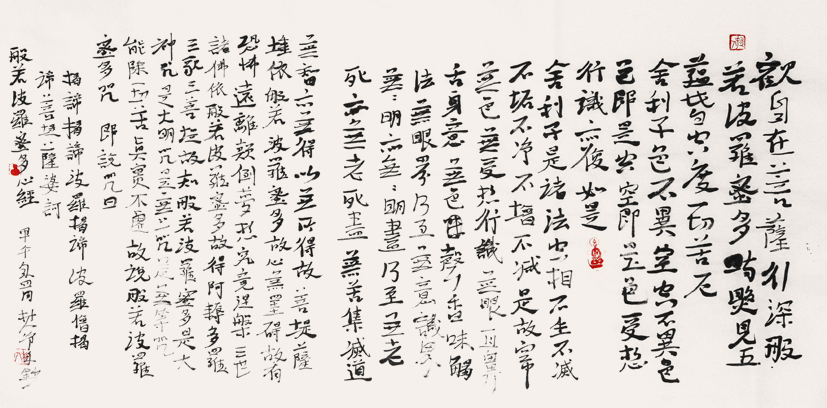 觀自在菩薩行深般
若波羅蜜多時照見五
蘊皆空度一切苦厄
舍利子色不異空空不異色
色即是空空即是色受想
行識亦復如是
舍利子是諸法空相不生不滅
不垢不净不增不減是故空中
無色無受想行識無眼耳鼻
舌身意無色聲香味觸
法無眼界乃至無意識界
無無明亦無無明盡乃至無老
死亦無老死盡無苦集滅道
無智亦無得以無所得故菩提薩
埵依般若波羅蜜多故心無罣礙故有
恐怖遠離顛倒夢想究竟涅槃三世
諸佛依般若波羅蜜多故得阿耨多羅
三藐三菩提故知般若波羅蜜多是大
神咒是大明咒是無上咒是無等咒
能除一切苦真實不虛故說般若波羅
蜜多咒即說咒曰
揭諦揭諦波羅揭諦波羅僧揭
諦菩提薩婆訶
般若波羅蜜多心經
甲午